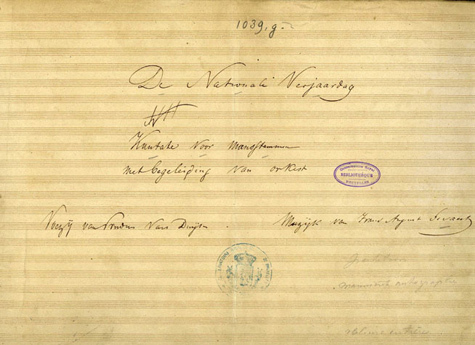 1039, g.
De Nationale Verjaardag
Kantate voor Mansstemmen
met begeleiding van orkest
BIBLIOTHÈQUE
van Prudens Van Duyse.
Muzijk van Frans August Gevaert